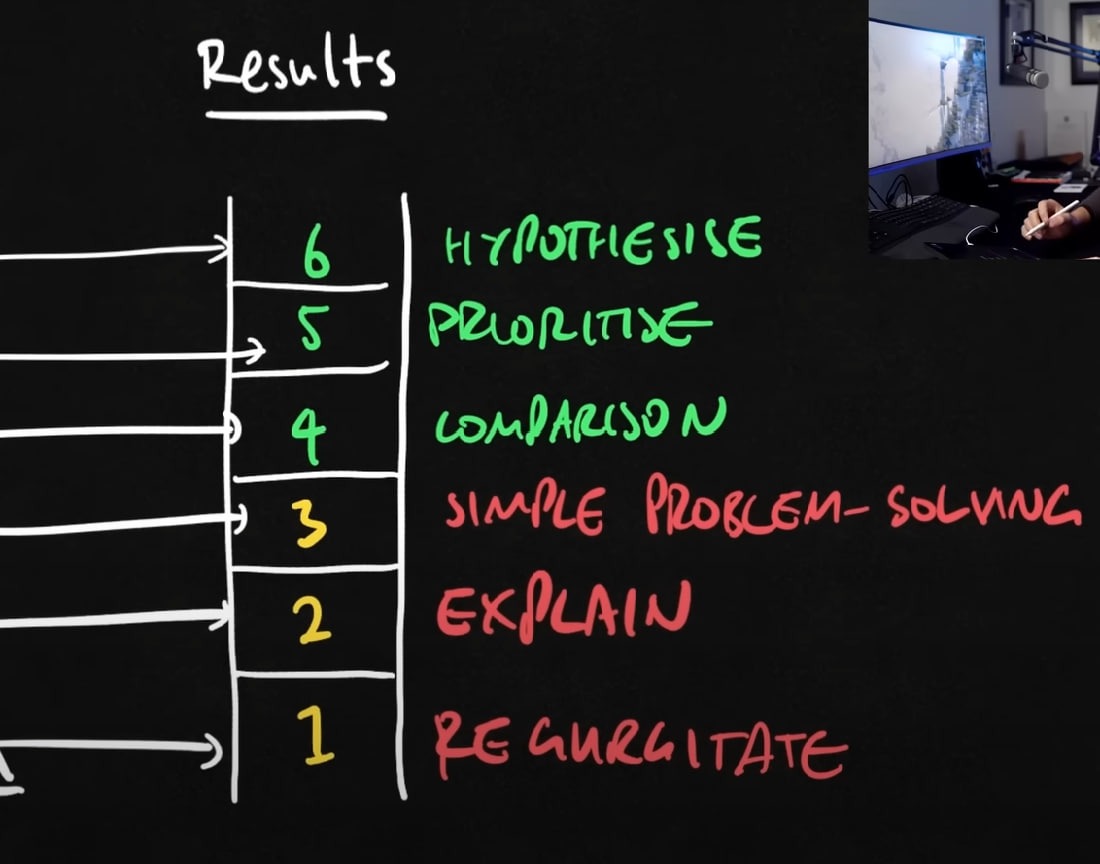 Results
6 HYPOTHESISE
5 PRIORITISE
4 COMPARISON
3 SIMPLE PROBLEM-SOLVING
2 EXPLAIN
1 REGURGITATE